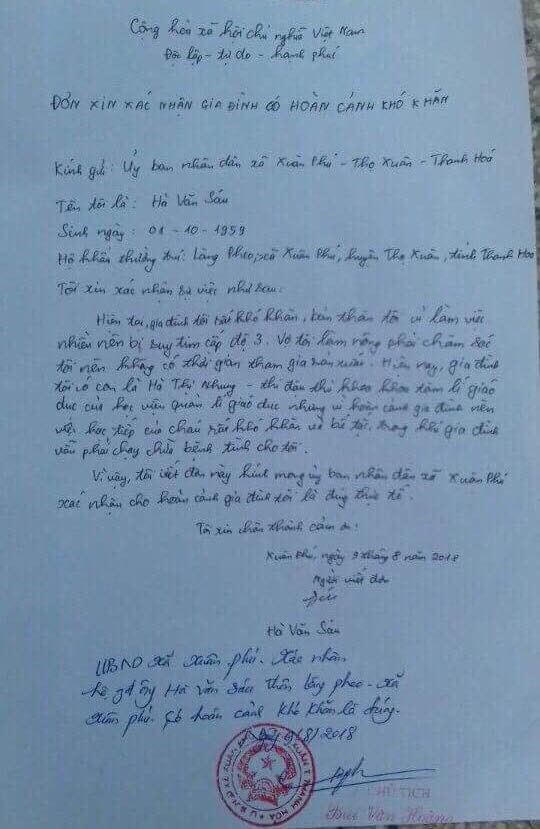 Cộng hòa xã hội chủ nghĩa Việt Nam
Độc lập - tự do - hạnh phúc
ĐƠN XIN XÁC NHẬN GIA ĐÌNH CÓ HOÀN CẢNH KHÓ KHĂN
Kính gửi: Ủy ban nhân dân xã Xuân Phú - Thọ Xuân - Thanh Hoá
Tên tôi là: Hà Văn Sáu
Sinh ngày: 01-10-1959
Hộ khẩu thường trú: Làng Pheo, xã Xuân Phú, huyện Thọ Xuân, tỉnh Thanh Hoá
Tôi xin xác nhận sự việc như sau:
Hiện tại, gia đình tôi rất khó khăn, bản thân tôi vì làm việc
nhiều nên bị suy tim cấp độ 3. Vợ tôi làm nông phải chăm sóc
tôi nên không có thời gian tham gia sản xuất. Hiện nay, gia đình
tôi có con là Hà Thị Nhung - thi đậu thủ khoa khoa tâm lí giáo
dục của học viện quản lí giáo dục nhưng vì hoàn cảnh gia đình nên
việc học tiếp của cháu rất khó khăn và bế tắc, trong khi gia đình
vẫn phải chạy chữa bệnh tình cho tôi.
Vì vậy, tôi viết đơn này kính mong ủy ban nhân dân xã Xuân Phú
xác nhận cho hoàn cảnh gia đình tôi là đúng thực tế.
Tôi xin chân thành cảm ơn!
Xuân Phú, ngày 9 tháng 8 năm 2018
Người viết đơn
Sáu
Hà Văn Sáu
UBND xã Xuân phú. Xác nhận
hộ gđ ông Hà Văn Sáu thôn làng pheo - xã
Xuân phú. Có hoàn cảnh khó khăn là đúng.
9/8/2018
CHỦ TỊCH
Bùi Văn Hoàng